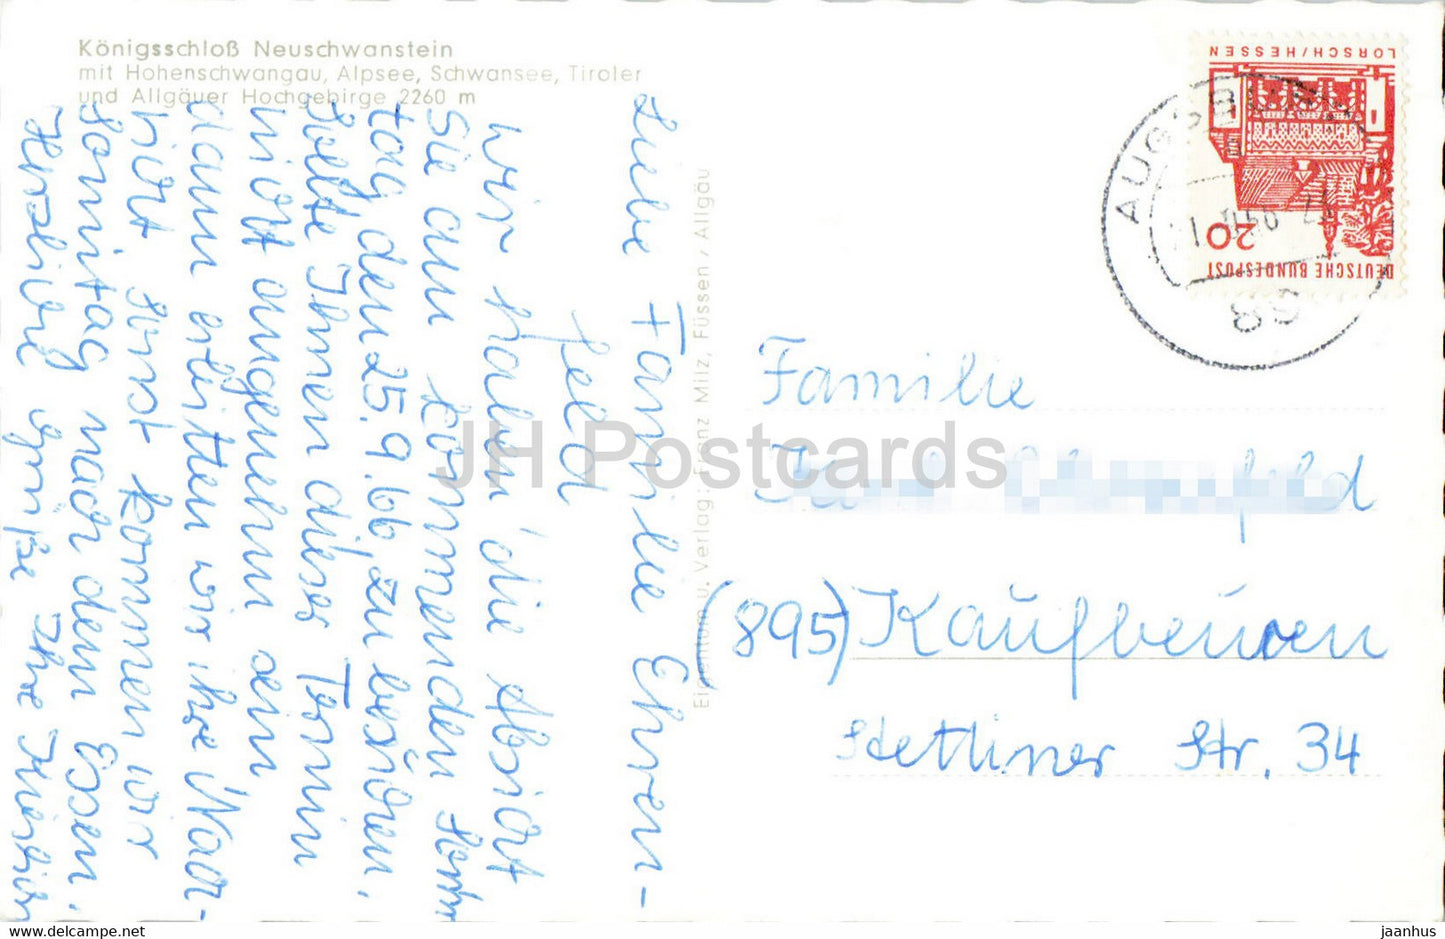 Königsschloß Neuschwanstein
mit Hohenschwangau, Alpsee, Schwansee, Tiroler
und Allgäuer Hochgebirge 2260 m
Liebe Familie Ehren-
feld
Wir haben die Absicht
Sie am kommenden Sonn
tag den 25.9.66 zu besuchen.
Sollte Ihnen dieser Termin
nicht angenehm sein
dann erbitten wir ihre Nach-
richt. Sonst kommen wir
Sonntag nach dem Essen.
Herzliche Grüße Ihre
Eigentum u. Verlag: Franz Milz, Füssen / Allgäu
LORSCH/HESSEN
20
DEUTSCHE BUNDESPOST
AUGSBURG
89
Familie
(895) Kaufbeuren
Stettiner Str. 34
JH Postcards
www.delcampe.net
jaanhus